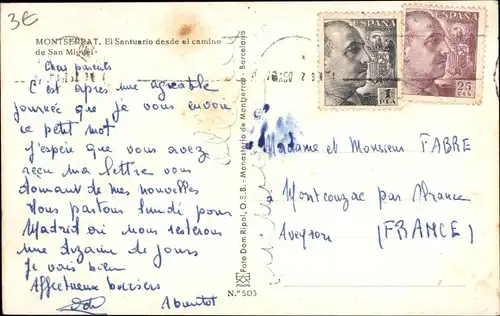 3€
MONTSERRAT. El Santuario desde el camino
de San Miguel
Chers parents
C'est après une agréable
journée que je vous envoie
ce petit mot
J'espère que vous avez
reçu ma lettre vous
donnant de mes nouvelles
Nous partons lundi pour
Madrid où nous resterons
une dizaine de jours
Je vais bien
Affectueux baisers
A bientôt
Foto Dom Ripol, O.S.B. - Monasterio de Montserrat - Barcelona
N.º 505
ESPAÑA
1
PTA
ESPAÑA
25
CTS
Madame et Monsieur FABRE
à Montconzac par Rance
Aveyron (FRANCE)